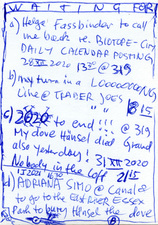 WAITING FOR
a) Helge Fassbinder to call
me back re. BIOTOPE-City
DAILY CALENDAR POSTING
28 XII 2020 13 25 @ 319
b) my turn in a LOOOOOOONG
Line @ TRADER JOES
18 15
c) 2020 to end!!! @ 319
My dove Hänsel died Grand
also yesterday! 31 XII 2020
Nobody in the Loft 21 15
1 I 2021 16 30
d) ADRIANA SIMO @ Canal &
to go to the East River Essex
Park to bury Hänsel the dove